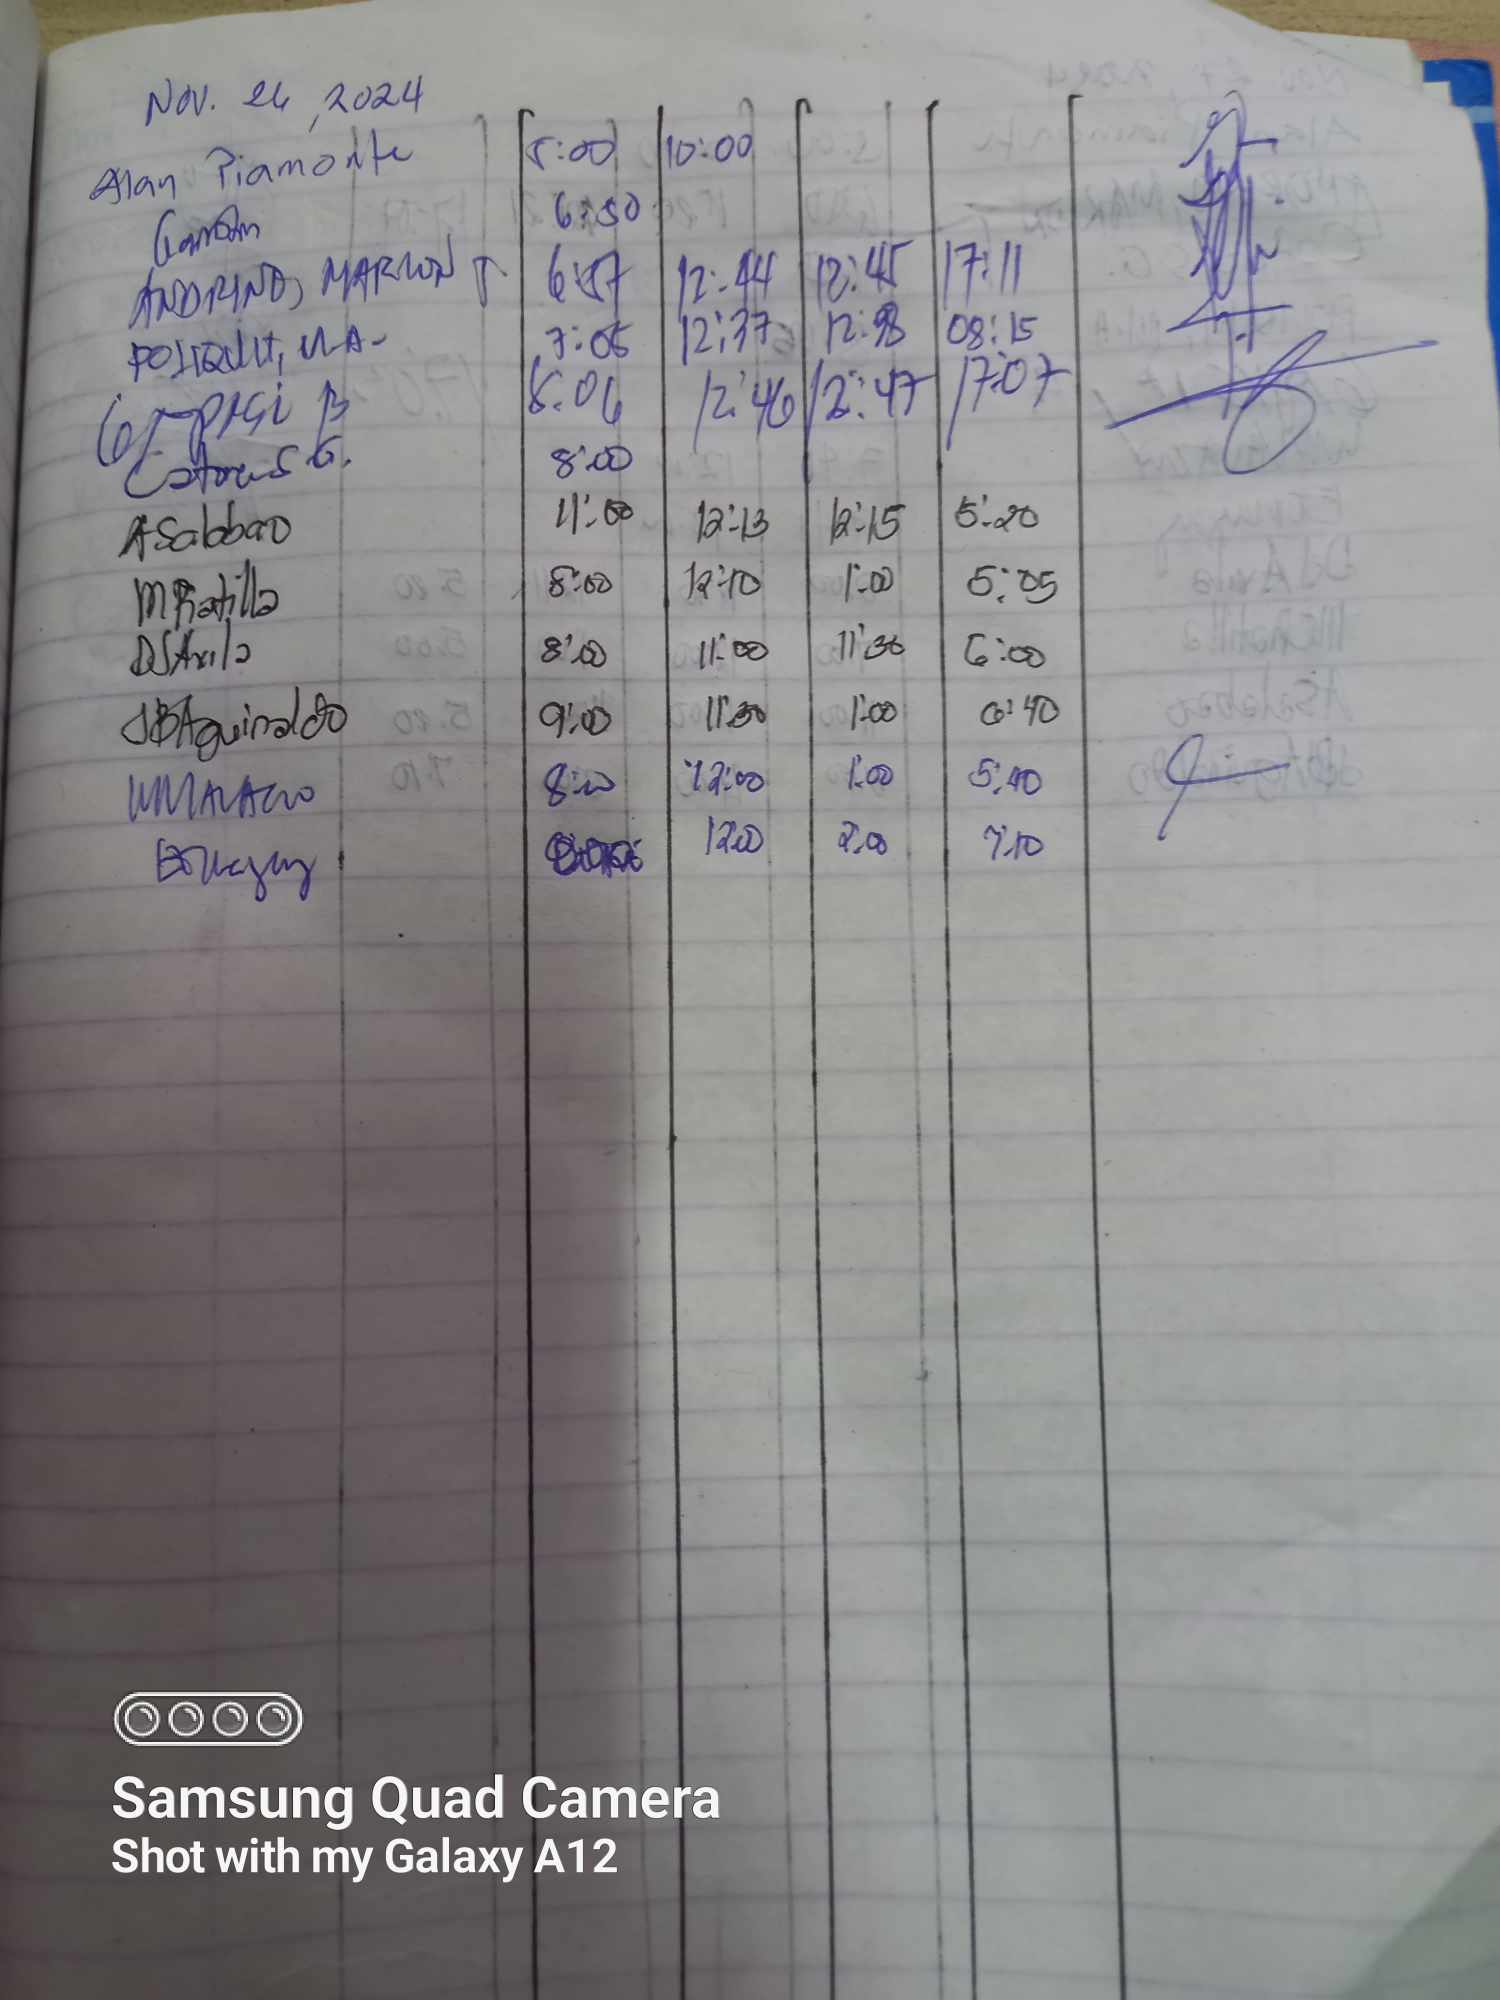 Nov. 26, 2024
Alan Piamonte 5:00 10:00
6:50
ANDRINO, MARLON T 6:57 12:44 12:45 17:11
POLIQUIT, M.A. 7:05 12:37 12:38 08:15
B 8:06 12:46 12:47 17:07
G. 8:00
A Salabao 11:00 12:13 12:15 5:20
M Ratilla 8:00 12:10 1:00 5:05
DJ Avila 8:00 11:00 11:30 6:00
JB Aguinaldo 9:00 11:30 1:00 6:40
8:00 12:00 1:00 5:40
12:00 2:00 7:10
Samsung Quad Camera
Shot with my Galaxy A12